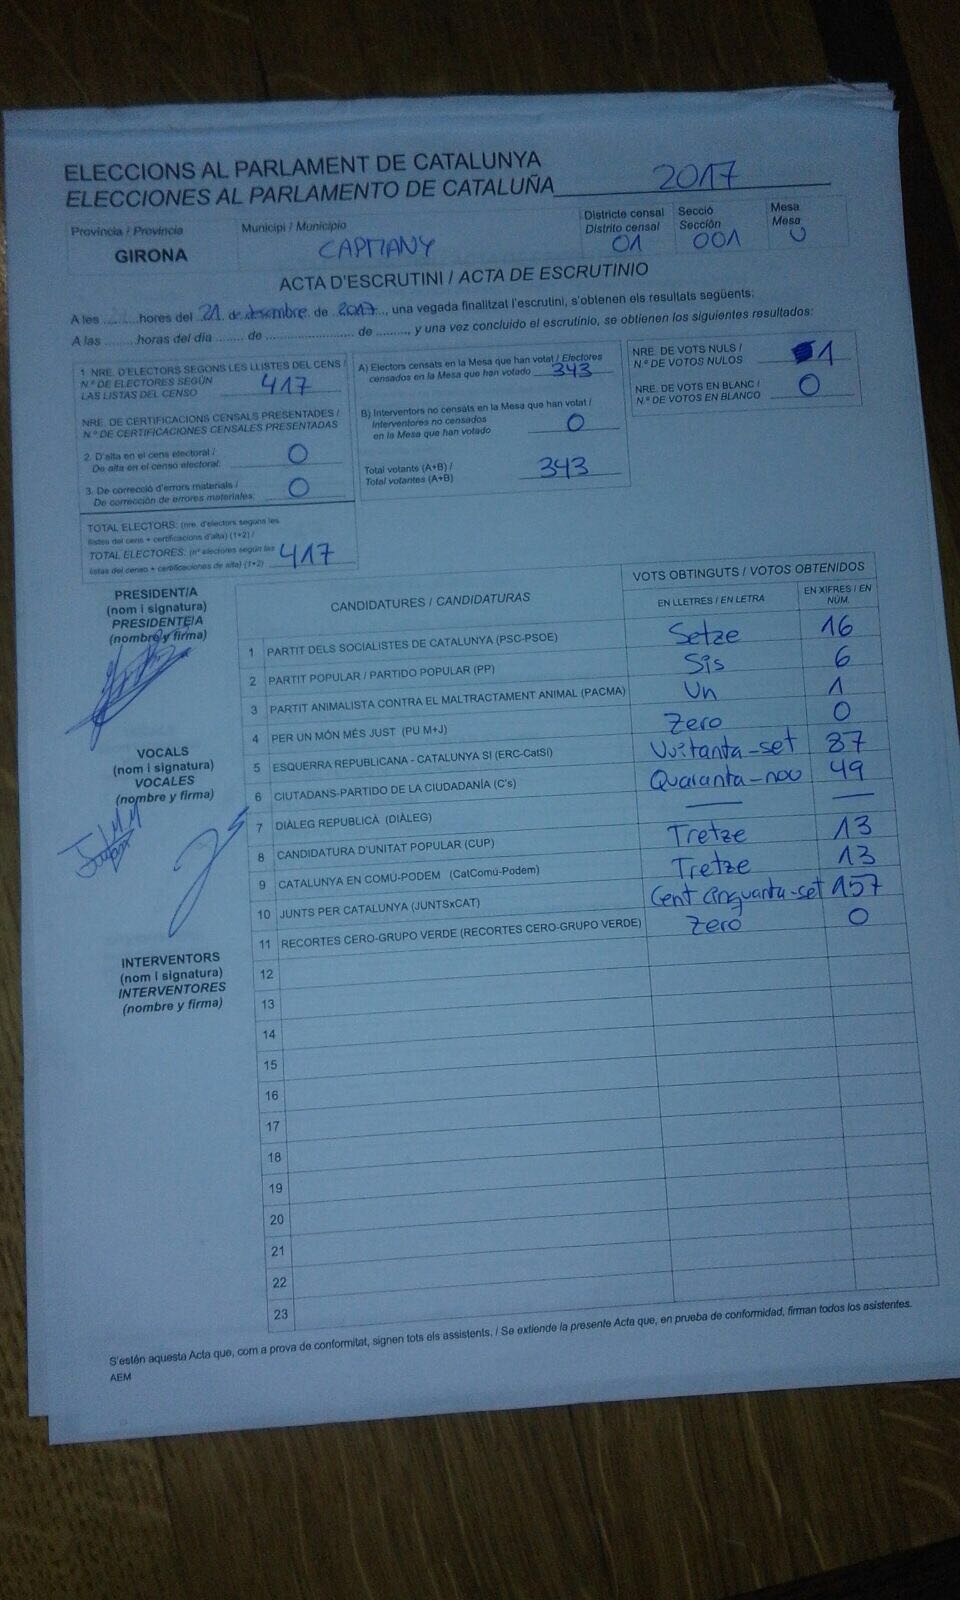 ELECCIONS AL PARLAMENT DE CATALUNYA
ELECCIONES AL PARLAMENTO DE CATALUÑA 2017
Provincia / Provincia
GIRONA
Municipi / Municipio
CAPMANY
Districte censal
Distrito censal
01
Secció
Sección
001
Mesa
Mesa
U
ACTA D'ESCRUTINI / ACTA DE ESCRUTINIO
A les ........hores del 21 de desembre de 2017, una vegada finalitzat l'escrutini, s'obtenen els resultats següents:
A las ........horas del día ....... de ...................... de ........, y una vez concluido el escrutinio, se obtienen los siguientes resultados:
1. NRE. D'ELECTORS SEGONS LES LLISTES DEL CENS /
N.º DE ELECTORES SEGÚN
LAS LISTAS DEL CENSO 417
NRE. DE CERTIFICACIONS CENSALS PRESENTADES /
N.º DE CERTIFICACIONES CENSALES PRESENTADAS
2. D'alta en el cens electoral /
De alta en el censo electoral: 0
3. De correcció d'errors materials /
De corrección de errores materiales: 0
TOTAL ELECTORS: (nre. d'electors segons les
llistes del cens + certificacions d'alta) (1+2) /
TOTAL ELECTORES: (nº electores según las
listas del censo + certificaciones de alta) (1+2) 417
A) Electors censats en la Mesa que han votat / Electores
censados en la Mesa que han votado 343
B) Interventors no censats en la Mesa que han votat /
Interventores no censados
en la Mesa que han votado 0
Total votants (A+B) /
Total votantes (A+B) 343
NRE. DE VOTS NULS /
N.º DE VOTOS NULOS 1
NRE. DE VOTS EN BLANC /
N.º DE VOTOS EN BLANCO 0
PRESIDENT/A
(nom i signatura)
PRESIDENTE/A
(nombre y firma)
VOCALS
(nom i signatura)
VOCALES
(nombre y firma)
INTERVENTORS
(nom i signatura)
INTERVENTORES
(nombre y firma)
CANDIDATURES / CANDIDATURAS
VOTS OBTINGUTS / VOTOS OBTENIDOS
EN LLETRES / EN LETRA
EN XIFRES / EN NÚM.
1 PARTIT DELS SOCIALISTES DE CATALUNYA (PSC-PSOE) Setze 16
2 PARTIT POPULAR / PARTIDO POPULAR (PP) Sis 6
3 PARTIT ANIMALISTA CONTRA EL MALTRACTAMENT ANIMAL (PACMA) Un 1
4 PER UN MÓN MÉS JUST (PU M+J) Zero 0
5 ESQUERRA REPUBLICANA - CATALUNYA SI (ERC-CatSI) Vuitanta-set 87
6 CIUTADANS-PARTIDO DE LA CIUDADANÍA (C's) Quaranta-nou 49
7 DIÀLEG REPUBLICÀ (DIÀLEG) — —
8 CANDIDATURA D'UNITAT POPULAR (CUP) Tretze 13
9 CATALUNYA EN COMÚ-PODEM (CatComú-Podem) Tretze 13
10 JUNTS PER CATALUNYA (JUNTSxCAT) Cent cinquanta-set 157
11 RECORTES CERO-GRUPO VERDE (RECORTES CERO-GRUPO VERDE) Zero 0
12
13
14
15
16
17
18
19
20
21
22
23
S'estén aquesta Acta que, com a prova de conformitat, signen tots els assistents. / Se extiende la presente Acta que, en prueba de conformidad, firman todos los asistentes.
AEM